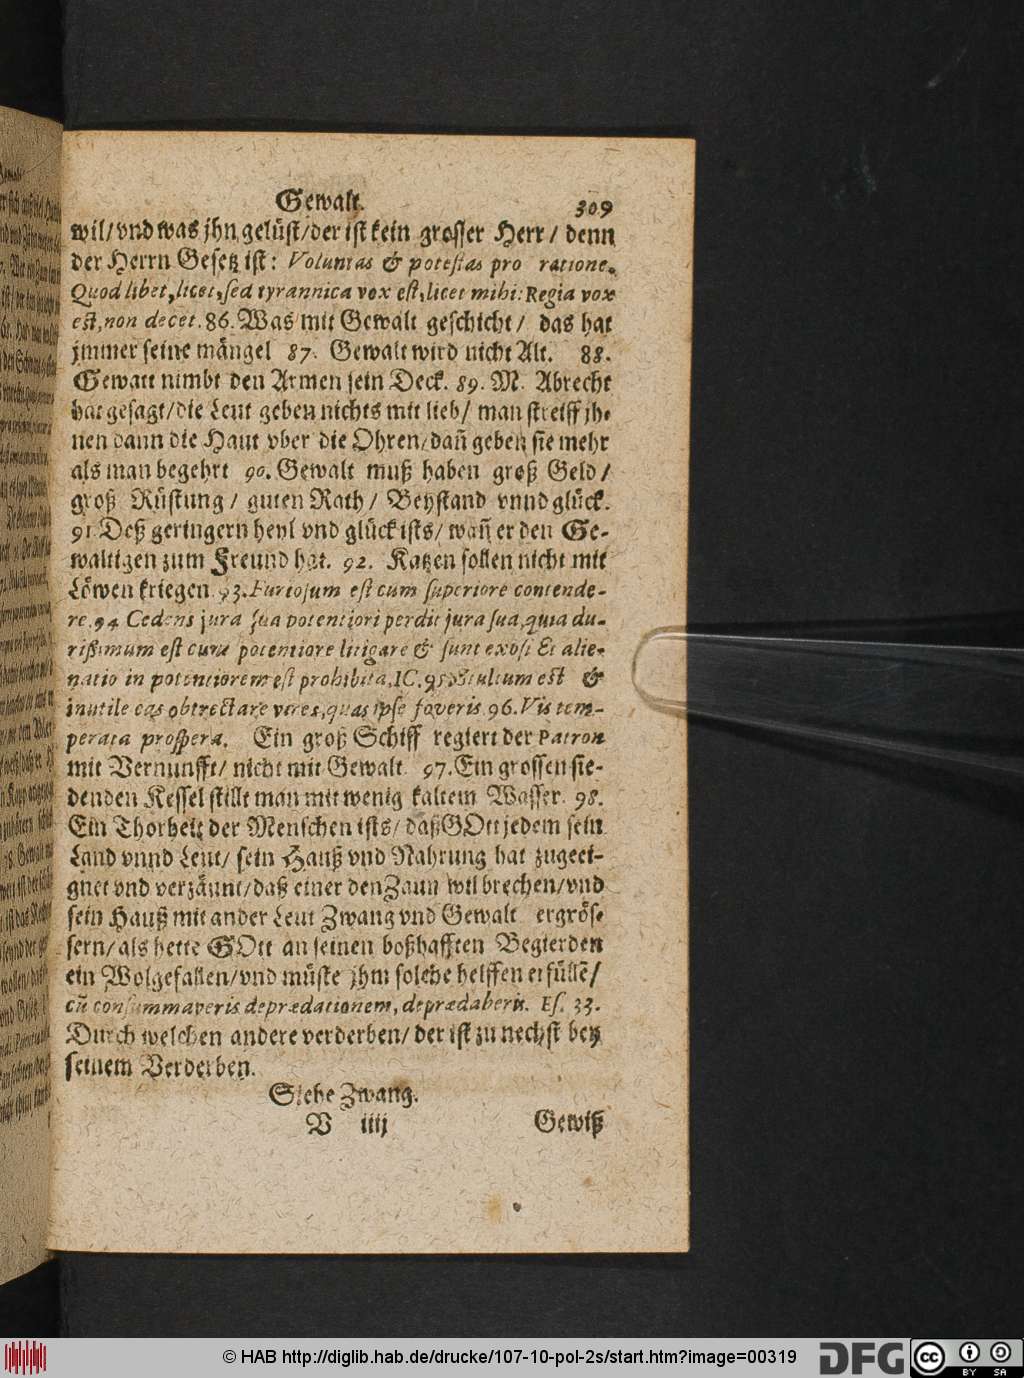 Gewalt. 309
wil/vnd was jhn gelüst/der ist kein grosser Herr/ denn
der Herrn Gesetz ist: Voluntas & potestas pro ratione.
Quod libet, licet, sed tyrannica vox est, licet mihi: Regia vox
est, non decet. 86. Was mit Gewalt geschicht/ das hat
jmmer seine mängel 87. Gewalt wird nicht Alt. 88.
Gewalt nimbt den Armen sein Deck. 89. M. Abrecht
hat gesagt/die Leut geben nichts mit lieb/ man streiff jh-
nen dann die Haut vber die Ohren/dañ geben sie mehr
als man begehrt 90. Gewalt muß haben groß Geld/
groß Rüstung/ guten Rath/ Beystand vnnd glück.
91. Deß geringern heyl vnd glück ists/ wañ er den Ge-
waltigen zum Freund hat. 92. Katzen sollen nicht mit
Löwen kriegen. 93. Furiosum est cum superiore contende-
re. 94 Cedens jura sua potentiori perdit jura sua, quia du-
rissimum est cum potentiore litigare & sunt exosi Et alie-
natio in potentiorem est prohibita. IC. 95. Stultum est &
inutile eas obtrectare vires, quas ipse foveris. 96. Vis tem-
perata prospera. Ein groß Schiff regiert der Patron
mit Vernunfft/ nicht mit Gewalt. 97. Ein grossen sie-
denden Kessel stillt man mit wenig kaltem Wasser. 98.
Ein Thorheit der Menschen ists/ daß GOtt jedem sein
Land vnnd Leut/ sein Hauß vnd Nahrung hat zugeei-
gnet vnd verzäunt/daß einer den Zaun wil brechen/vnd
sein Hauß mit ander Leut Zwang vnd Gewalt ergrös-
sern/als hette GOtt an seinen boßhafften Begierden
ein Wolgefallen/vnd müste jhm solche helffen erfüllẽ/
cũ consummaveris deprædationem, deprædaberis. Es. 33.
Durch welchen andere verderben/ der ist zu nechst bey
seinem Verderben.
Siehe Zwang.
V iiij Gewiß
© HAB http://diglib.hab.de/drucke/107-10-pol-2s/start.htm?image=00319 DFG CC BY SA